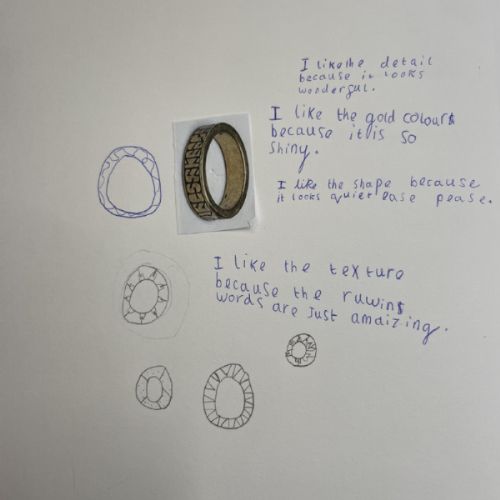 I like the detail
because it looks
wonderful.
I like the gold colours
because it is so
shiny.
I like the shape because
it looks quiet ease pease.
I like the texture
because the ruwins
words are just amaizing.